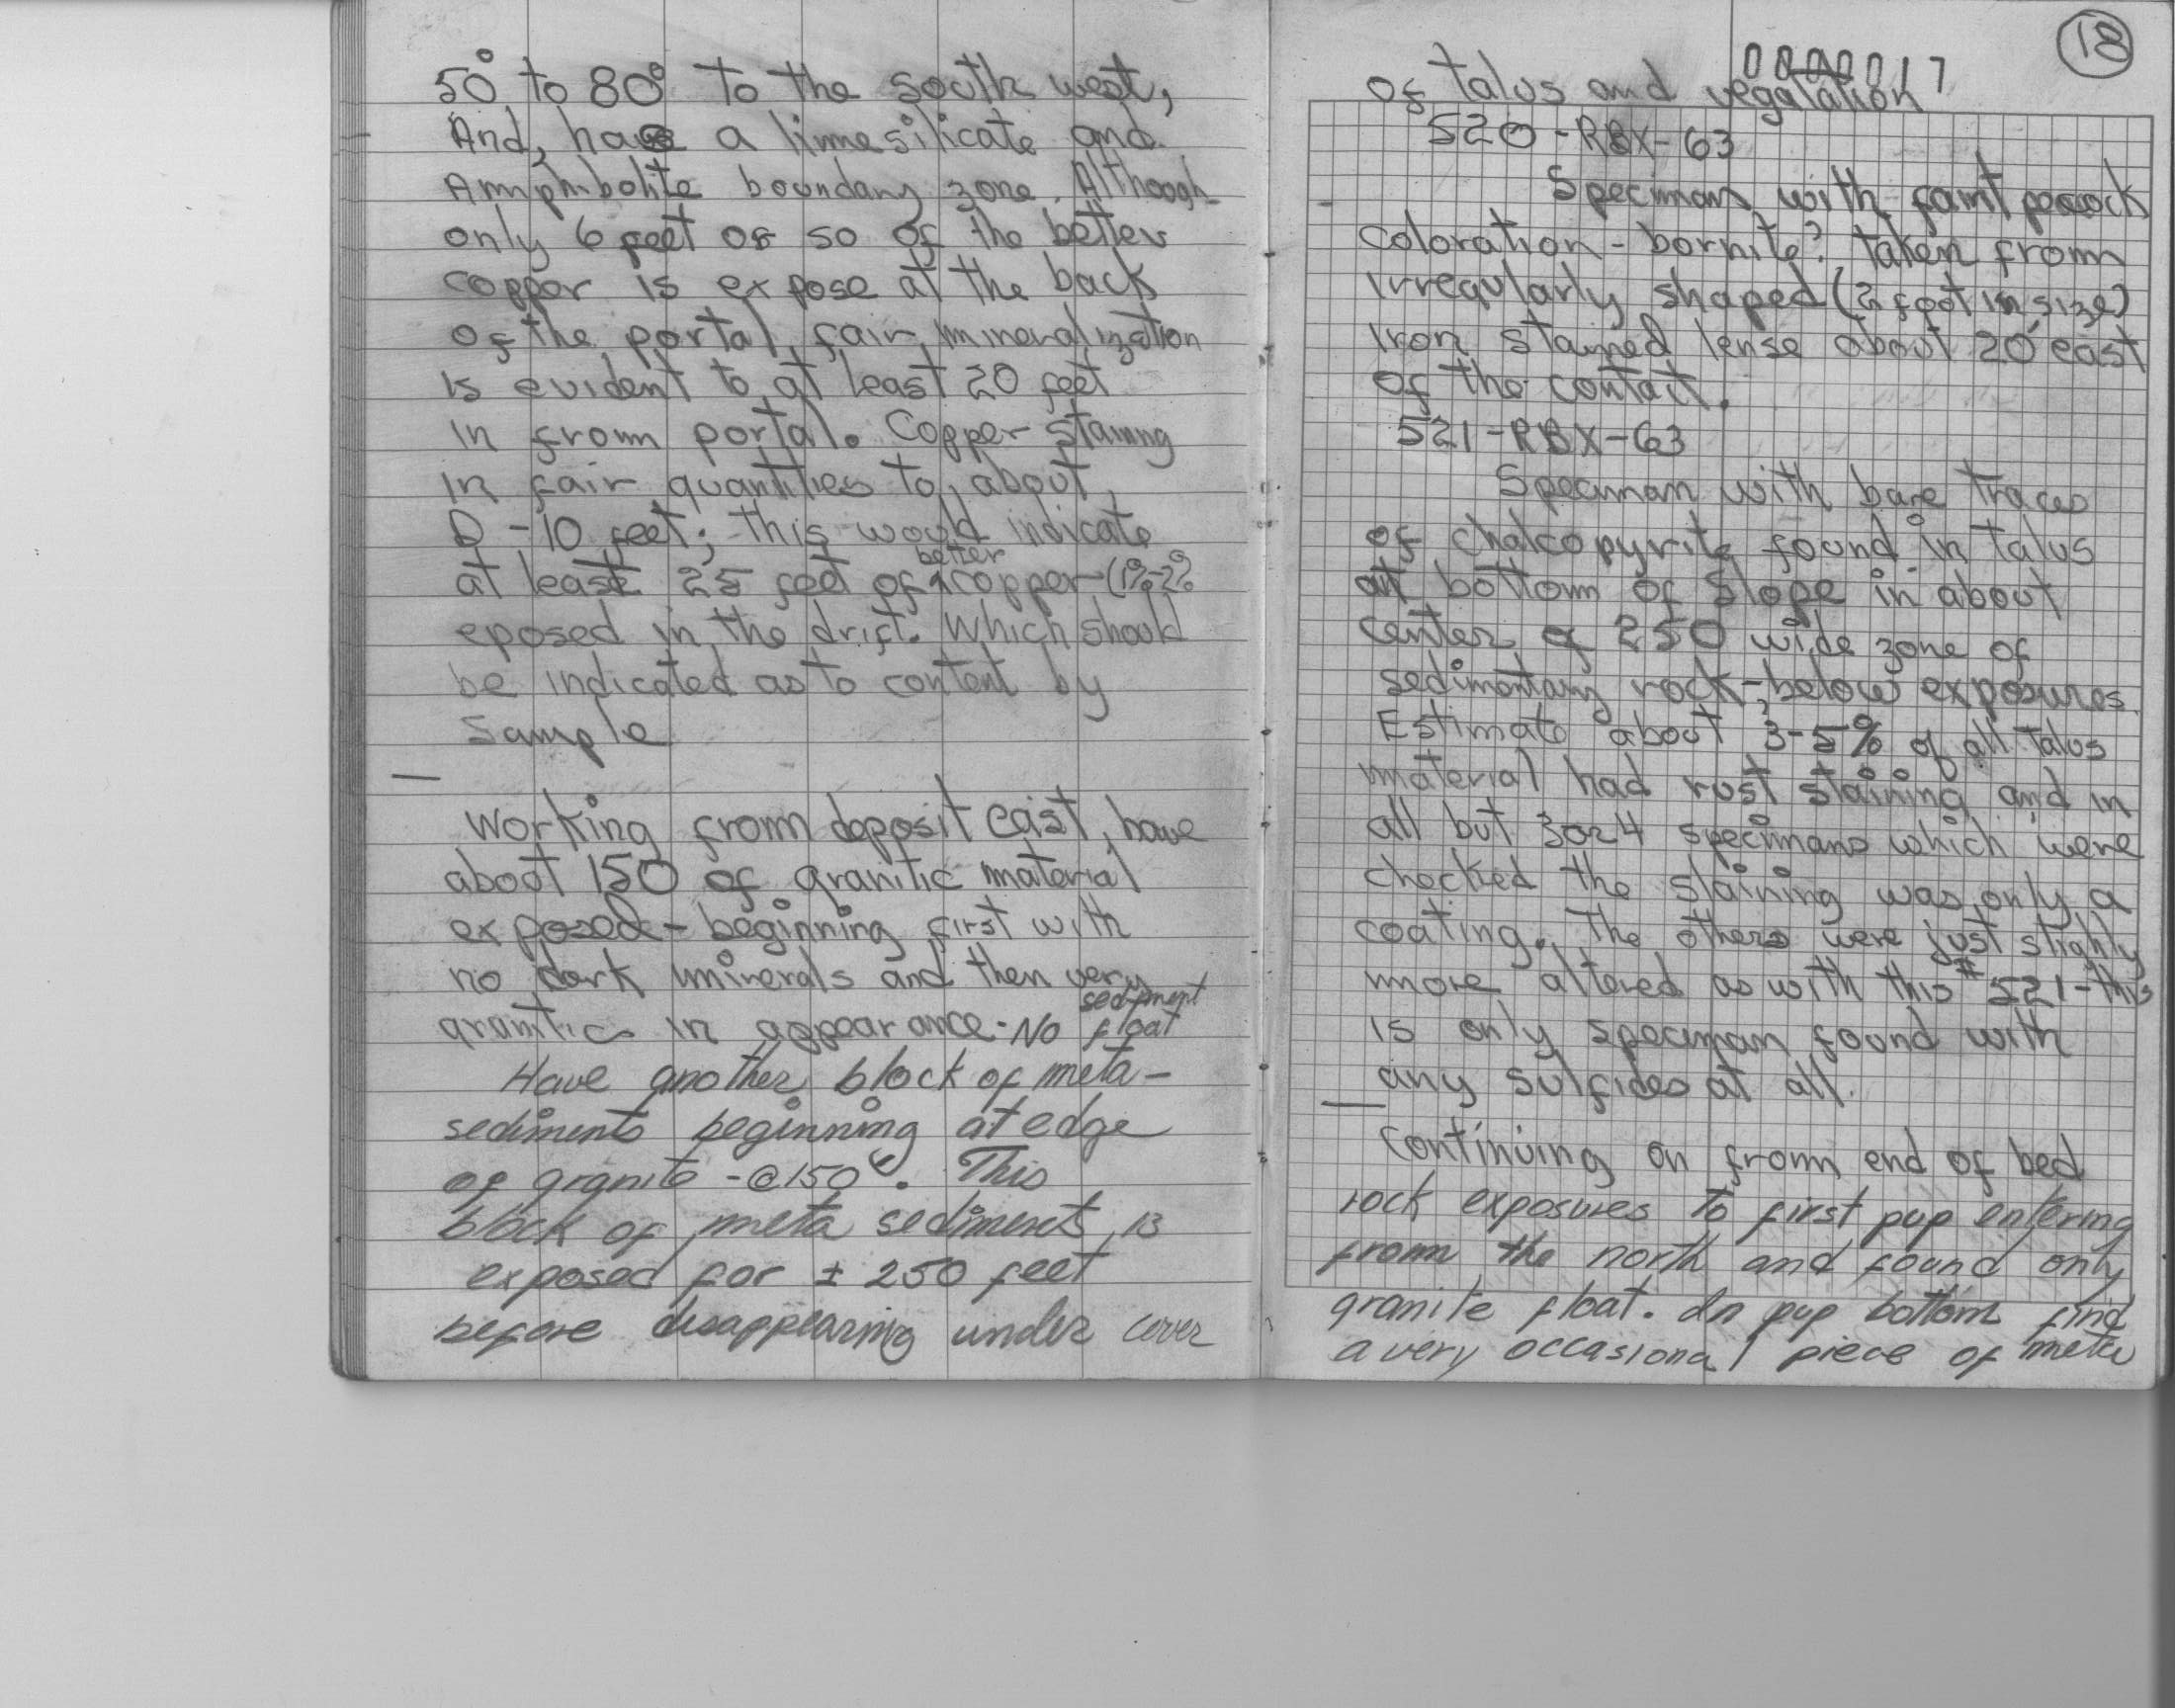 50° to 80° to the south west,
And, have a lime silicate and
Amphibolite boundary zone. Although
only 6 feet or so of the better
copper is expose at the back
of the portal, fair mineralization
is evident to at least 20 feet
in from portal. Copper staining
in fair quantities to about
D - 10 feet; this would indicate
better
at least 25 feet of copper (1%-2%
eposed in the drift. Which should
be indicated as to content by
Sample
—
Working from deposit east, have
about 150 of granitic material
exposed - beginning first with
no dark minerals and then very
sediment
granitic in appearance. No float
Have another block of meta-
sediments beginning at edge
of granite - @ 150'. This
block of meta sediments is
exposed for ± 250 feet
before disappearing under cover
18
0000017
of talus and vegatation
520-RBX-63
Speciman with faint peacock
coloration - bornite? taken from
irregularly shaped (2 foot in size)
iron stained lense about 20' east
of the contact.
521-RBX-63
Speciman with bare traces
of chalcopyrite found in talus
at bottom of slope in about
center of 250 wide zone of
sedimentary rock - below exposures.
Estimate about 3-5% of all talus
material had rust staining and in
all but 3 or 4 specimans which were
checked the staining was only a
coating. The others were just slighly
more altered as with this #521 - this
is only speciman found with
any sulfides at all.
—
Continuing on from end of bed
rock exposures to first pup entering
from the north and found only
granite float. In pup bottom find
a very occasional piece of meta